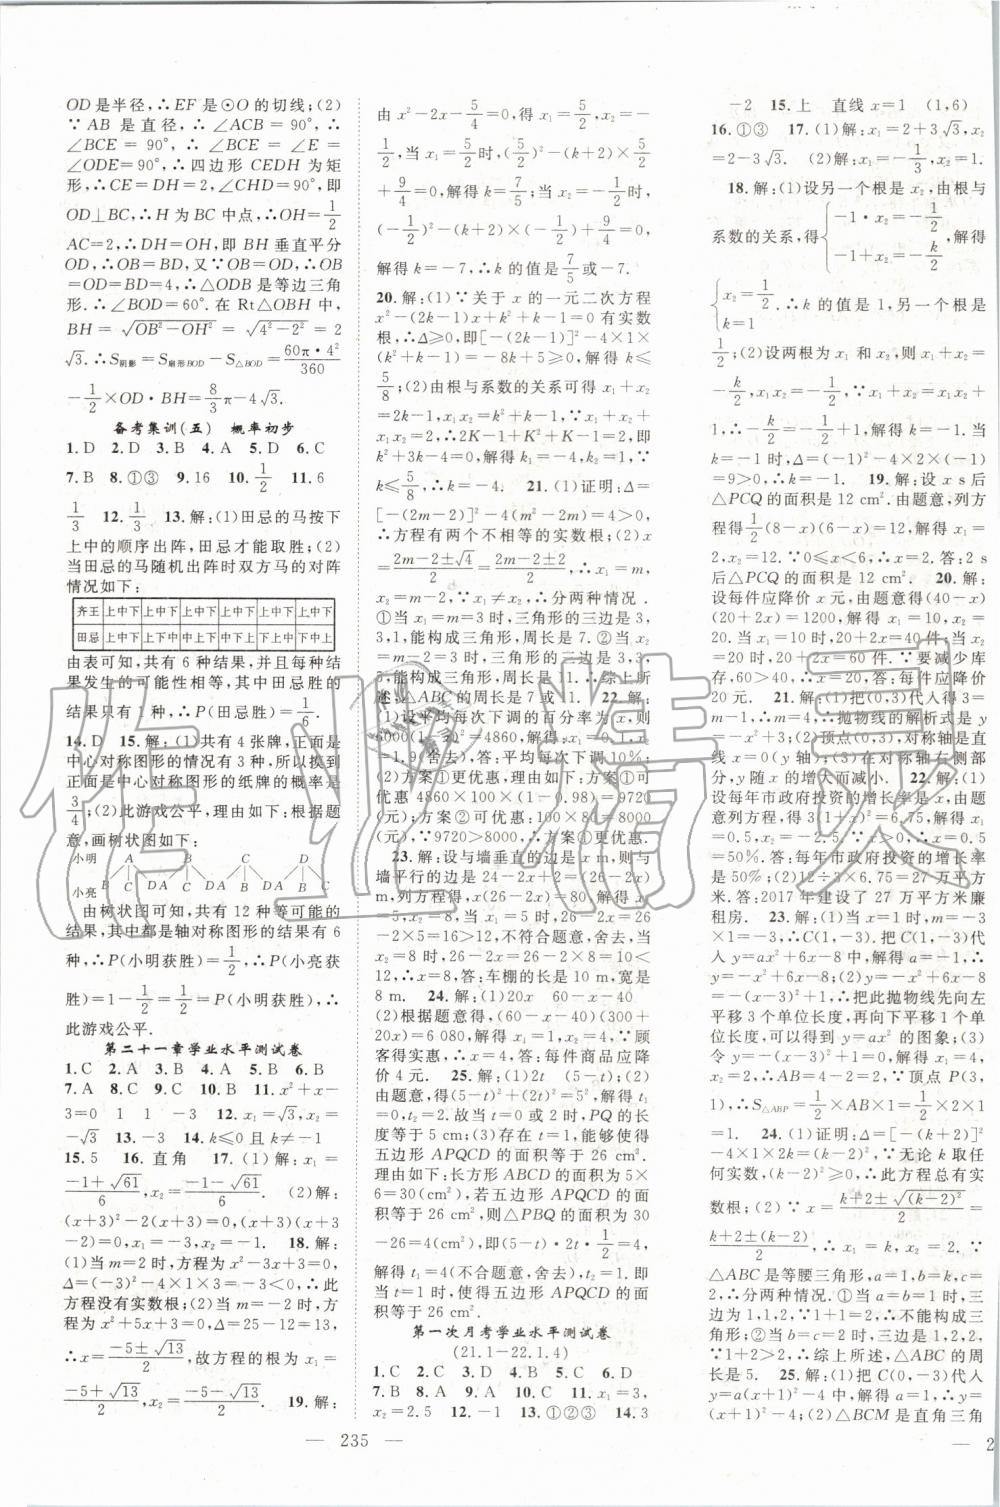 OD是半径,∴EF是⊙O的切线;(2)
∵AB是直径,∴∠ACB=90°,∴
∠BCE=90°,∵∠BCE=∠E=
∠ODE=90°,∴四边形CEDH为矩
形,∴CE=DH=2,∠CHD=90°,即
OD⊥BC,∴H为BC中点,∴OH=1/2
AC=2,∴DH=OH,即BH垂直平分
OD,∴OB=BD,又∵OB=OD,∴OB
=OD=BD=4,∴△ODB是等边三角
形.∴∠BOD=60°.在Rt△OBH中,
BH=√(OB²−OH²)=√(4²−2²)=2
√3.∴S阴影=S扇形BOD−S△BOD=60π·4²/360
−1/2×OD·BH=8/3π−4√3.
备考集训(五) 概率初步
1.D 2.D 3.B 4.A 5.D 6.C
7.B 8.①③ 9.16 10.1/2 11.6
1/3 12.1/3 13.解:(1)田忌的马按下
上中的顺序出阵,田忌才能取胜;(2)
当田忌的马随机出阵时双方马的对阵
情况如下:
齐王 上中下 上中下 上中下 上中下 上中下 上中下
田忌 上中下 上下中 中上下 中下上 下上中 下中上
由表可知,共有6种结果,并且每种结
果发生的可能性相等,其中田忌胜的
结果只有1种,∴P(田忌胜)=1/6.
14.D 15.解:(1)共有4张牌,正面是
中心对称图形的情况有3种,所以摸到
正面是中心对称图形的纸牌的概率是
3/4;(2)此游戏公平,理由如下:根据题
意,画树状图如下:
小明 A B C D
小亮 B C D A C D A B D A B C
由树状图可知,共有12种等可能的
结果,其中都是轴对称图形的结果有6
种,∴P(小明获胜)=1/2,∴P(小亮获
胜)=1−1/2=1/2=P(小明获胜),∴
此游戏公平.
第二十一章学业水平测试卷
1.C 2.A 3.B 4.A 5.B 6.B
7.A 8.C 9.C 10.B 11.x²+x−
3=0 1 1 −3 12.x₁=√3,x₂=
−√3 13.−3 14.k≤0且k≠−1
15.5 16.直角 17.(1)解:x₁=
(−1+√61)/6,x₂=(−1−√61)/6. (2)解:
(x+3)²−2(x+3)=0,(x+3)(x+3
−2)=0,x₁=−3,x₂=−1. 18.解:
(1)当m=2时,方程为x²−3x+3=0,
Δ=(−3)²−4×1×3=−3<0,∴此
方程没有实数根;(2)当m=−2时,方
程为x²+5x+3=0,Δ=25−12=13,
∴x=(−5±√13)/2,故方程的根为x₁=
(−5+√13)/2,x₂=(−5−√13)/2. 19.解:
由x²−2x−5/4=0,得x₁=5/2,x₂=−
1/2,当x₁=5/2时,(5/2)²−(k+2)×5/2
+9/4=0,解得k=7/5;当x₂=−1/2时,
(−1/2)²−(k+2)×(−1/2)+9/4=0,
解得k=−7,∴k的值是7/5或−7.
20.解:(1)∵关于x的一元二次方程
x²−(2k−1)x+k²+k−1=0有实数
根,∴Δ≥0,即[−(2k−1)]²−4×1×
(k²+k−1)=−8k+5≥0,解得k≤
5/8;(2)由根与系数的关系可得x₁+x₂
=2k−1,x₁x₂=k²+k−1,∵x₁+x₂
+x₁x₂=2,∴2K−1+K²+K−1=2,即
k²+3k−4=0,解得k=−4或k=1,∵
k≤5/8,∴k=−4. 21.(1)证明:Δ=
[−(2m−2)]²−4(m²−2m)=4>0,
∴方程有两个不相等的实数根;(2)x
=(2m−2±√4)/2=(2m−2±2)/2,∴x₁=m,
x₂=m−2,∵x₁≠x₂,∴分两种情况.
①当x₁=m=3时,三角形的三边是3,
3,1,能构成三角形,周长是7.②当x₂
=m−2=3时,三角形的三边是3,3,
5,能构成三角形,周长是11.∴综上所
述,△ABC的周长是7或11. 22.解:
(1)设平均每次下调的百分率为x,则
6000(1−x)²=4860,解得x₁=0.1,x₂=
1.9(舍去),答:平均每次下调10%.
(2)方案①更优惠,理由如下:方案①可
优惠4860×100×(1−0.98)=9720
(元),方案②可优惠:100×80=8000
(元),∵9720>8000,∴方案①更优惠.
23.解:设与墙垂直的边是x m,则与
墙平行的边是24−2x+2=(26−2x)
m,根据题意得x(26−2x)=80,解得x
=5,x₂=8,当x₁=5时,26−2x=26−
2×5=16>12,不符合题意,舍去,当
x₂=8时,26−2x=26−2×8=10<
12,∴x=8,答:车棚的长是10 m,宽是
8 m. 24.解:(1)20x 60−40−x
(2)根据题意得,(60−x−40)(300+
20x)=6 080,解得x₁=1,x₂=4,∵顾
客得实惠,∴x=4,答:每件商品应降
价4元. 25.解:(1)2t (5−t);(2)由
题意,得(5−t)²+(2t)²=5²,解得t₁
=0,t₂=2.∴当t=0或2时,PQ的长
度等于5 cm;(3)存在t=1,能够使得
五边形APQCD的面积等于26 cm².
理由如下:长方形ABCD的面积为5
×6=30(cm²),若五边形APQCD的面
积等于26 cm²,则△PBQ的面积为30
−26=4(cm²),即(5−t)·2t·1/2=4,
解得t=4(不合题意,舍去),t=1.∴
当t=1时,五边形APQCD的面
积等于26 cm².
第一次月考学业水平测试卷
(21.1−22.1.4)
1.C 2.C 3.C 4.D 5.C 6.D
7.B 8.A 9.C 10.B 11.x₁=3,
x₂=2.5 12.−1 13.①②③ 14.3
−2 15.上 直线x=1 (1,6)
16.①③ 17.(1)解:x₁=2+3√3,x₂
=2−3√3. (2)解:x₁=−1/3,x₂=1.
18.解:(1)设另一个根是x₂,由根与
系数的关系,得{−1·x₂=−1/2 −1+x₂=−k/2,解得
{x₂=1/2 k=1.∴k的值是1,另一个根是
1/2;(2)设两根为x₁和x₂,则x₁+x₂=
−k/2,x₁x₂=−1/2,∵x₁+x₂=x₁x₂,
∴−k/2=−1/2,解得k=1.当
k=1时,Δ=1²−4×2×(−1)
=9>0,∴k=1. 19.解:设x s后
△PCQ的面积是12 cm².由题意,列方
程得1/2(8−x)(6−x)=12,解得x₁=
2,x₂=12.∵0≤x<6,∴x=2.答:2 s
后△PCQ的面积是12 cm². 20.解:
设每件应降价x元,由题意得(40−x)
(20+2x)=1200.解得x₁=10,x₂=
20.当x=10时,20+2x=40,当x=
20时,20+2x=60.∵要减少库
存,∴x=20.答:每件应降价
20元. 21.解:(1)把(0,3)代入得3=
m−1,m=4,∴抛物线的解析式是
y=−x²+3;(2)顶点(0,3),对称轴是
直线x=0(y轴);(3)在对称轴左侧部
分,y随x的增大而减小. 22.解:(1)
设每年市政府投资的增长率是x,由题
意列方程,得3(1+x)²=6.75,解得x₁
=0.5,x₂=−2.5(舍去),∴x=0.5
=50%.答:每年市政府投资的增长率
是50%;(2)12÷3×6.75=27(万平方
米).答:2017年建设了27万平方米廉
租房. 23.解:(1)当x=1时,m=−3
×1=−3,∴C(1,−3).把C(1,−3)代
入y=ax²+6x−8中,解得a=−1,
∴a=−1,C(1,−3);(2)y=−x²+6x
−8=−(x−3)²+1,∴把此抛物线先向左
平移3个单位长度,再向下平移1个单
位长度,可得到y=ax²的图象;(3)
令y=−(x−3)²+1=0,得x₁=2,x₂
=4,∴AB=4−2=2,∵顶点P(3,
1),∴S△ABP=1/2×AB×1=1/2×2×1=
1. 24.(1)证明:Δ=[−(k+2)]²
−4×1×2k=(k−2)²,∵无论k取
任何实数,(k−2)²≥0,∴此方程总有实
数根;(2)∵x=(k+2±√(k−2)²)/2=
(k+2±(k−2))/2,∴x₁=k,x₂=2.∵
△ABC是等腰三角形,a=1,b≠c
2,∴分两种情况.①当a=1时,三
边为1,1,2,∵1+1=2,∴不能构成三
角形;②当b=c=2时,三边为1,2,2
∴能构成三角形,∴综上所述,△ABC的周长
是5. 25.解:(1)把C(0,−3)代入
y=a(x+1)(x−3)中,解得a=1,∴
y=x²−2x−3;(2)△BCM是直角三角
— 235 —
— 2
作业精灵